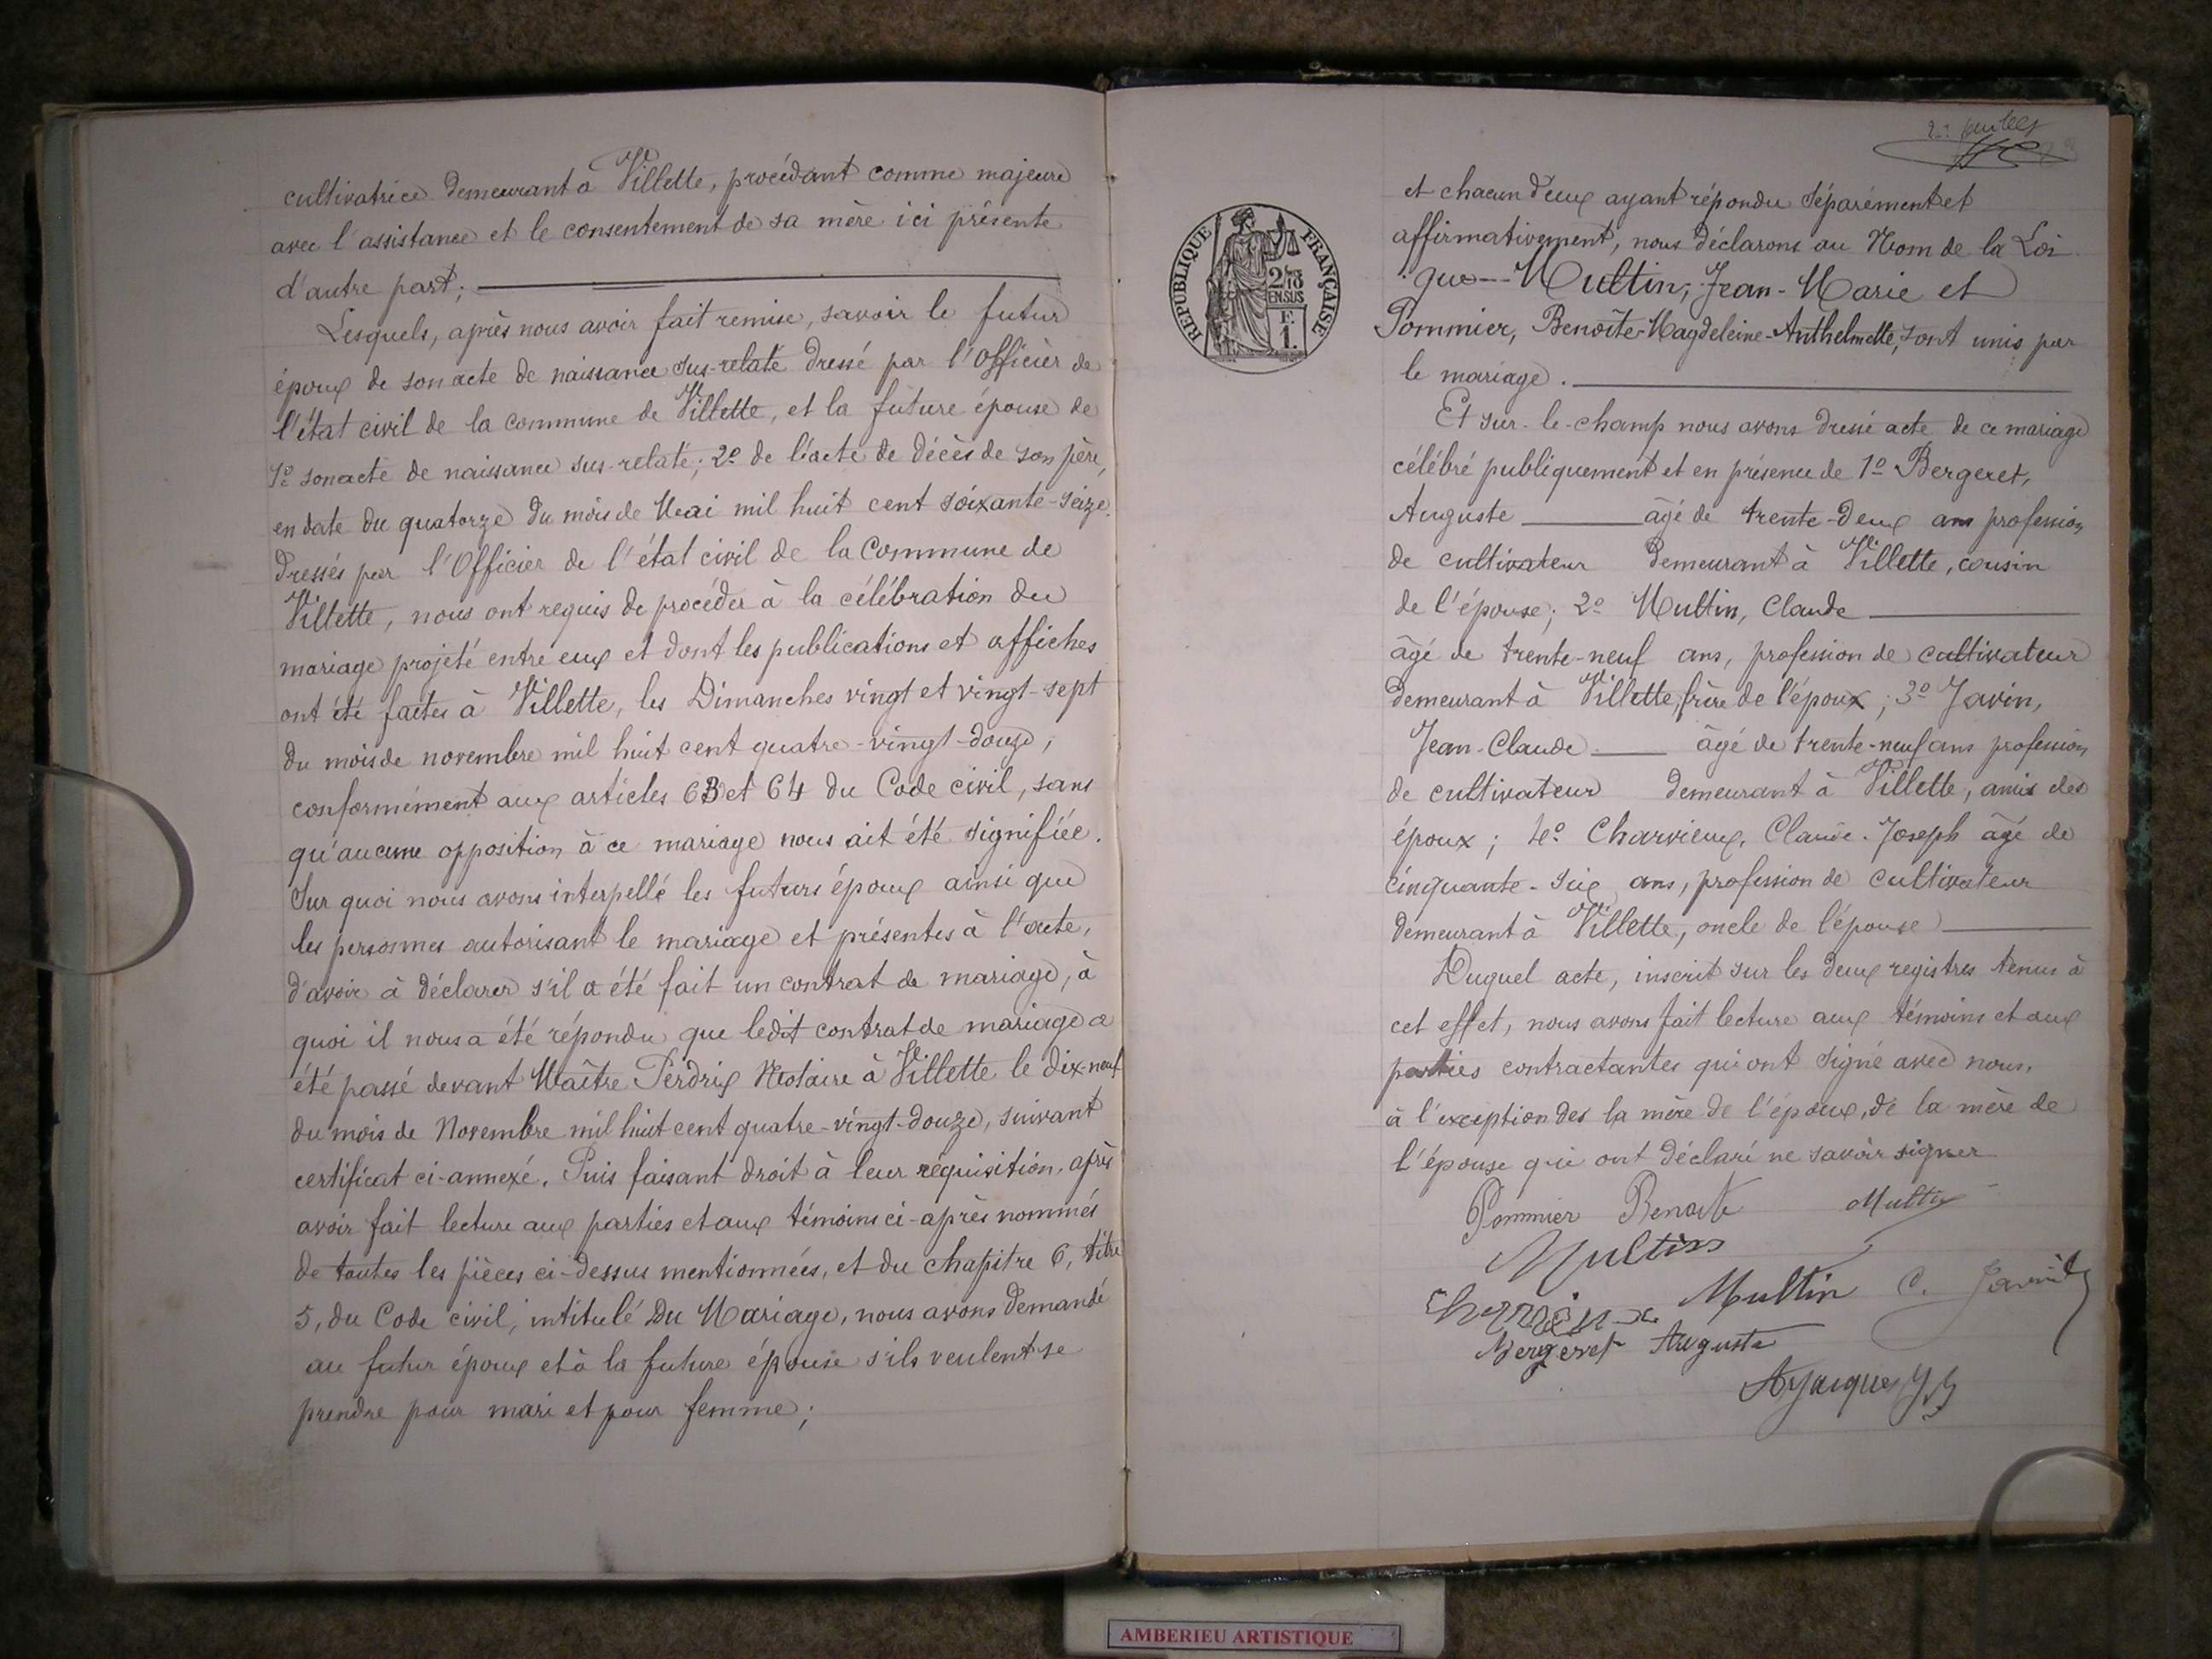 cultivatrice demeurant à Villette, procédant comme majeure
avec l'assistance et le consentement de sa mère ici présente
d'autre part;
Lesquels, après nous avoir fait remise, savoir le futur
époux de son acte de naissance sus-relaté dressé par l'Officier de
l'état civil de la commune de Villette, et la future épouse de
1º son acte de naissance sus-relaté; 2º de l'acte de décès de son père,
en date du quatorze du mois de Mai mil huit cent soixante-seize.
dressés par l'Officier de l'état civil de la Commune de
Villette, nous ont requis de procéder à la célébration du
mariage projeté entre eux et dont les publications et affiches
ont été faites à Villette, les Dimanches vingt et vingt-sept
du mois de novembre mil huit cent quatre-vingt-douze,
conformément aux articles 63 et 64 du Code civil, sans
qu'aucune opposition à ce mariage nous ait été signifiée.
Sur quoi nous avons interpellé les futurs époux ainsi que
les personnes autorisant le mariage et présentes à l'acte,
d'avoir à déclarer s'il a été fait un contrat de mariage, à
quoi il nous a été répondu que ledit contrat de mariage a
été passé devant Maître Perdrix Notaire à Villette le dix-neuf
du mois de Novembre mil huit cent quatre-vingt-douze, suivant
certificat ci-annexé. Puis faisant droit à leur réquisition, après
avoir fait lecture aux parties et aux témoins ci-après nommés
de toutes les pièces ci-dessus mentionnées, et du chapitre 6, titre
5, du Code civil, intitulé Du Mariage, nous avons demandé
au futur époux et à la future épouse s'ils veulent se
prendre pour mari et pour femme;
RÉPUBLIQUE FRANÇAISE
2/10
EN SUS
F.
1.
et chacun d'eux ayant répondu séparément et
affirmativement, nous déclarons au Nom de la Loi
que -- Multin, Jean-Marie et
Pommier, Benoîte-Magdeleine-Anthelmette, sont unis par
le mariage.
Et sur-le-champ nous avons dressé acte de ce mariage
célébré publiquement et en présence de 1º Bergeret,
Auguste âgé de trente-deux ans profession
de cultivateur demeurant à Villette, cousin
de l'épouse; 2º Multin, Claude
âgé de trente-neuf ans, profession de cultivateur
demeurant à Villette, frère de l'époux; 3º Javin,
Jean-Claude âgé de trente-neuf ans profession
de cultivateur demeurant à Villette, amis des
époux; 4º Charvieux, Claude-Joseph âgé de
cinquante-six ans, profession de cultivateur
demeurant à Villette, oncle de l'épouse
Duquel acte, inscrit sur les deux registres tenus à
cet effet, nous avons fait lecture aux témoins et aux
parties contractantes qui ont signé avec nous,
à l'exception des la mère de l'époux, de la mère de
l'épouse qui ont déclaré ne savoir signer
Pommier Benoite Multin
Multin
Charvieux Multin C. Javin
Bergeret Auguste
AMBERIEU ARTISTIQUE